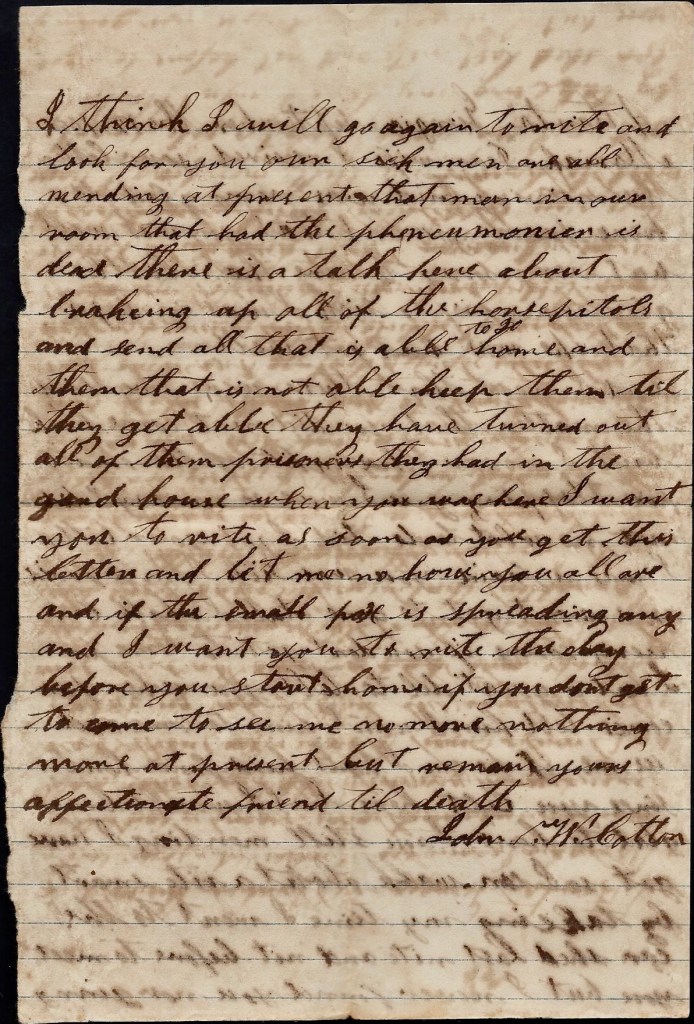 I think I will go again to nite and
look for you our sick men are all
mending at present that man in our
room that had the phoneumonien is
dead there is a talk here about
brakeing up all of the horsepitols
and send all that is able to go home and
them that is not able keep them til
they get able they have turned out
all of them prisoners they had in the
gard house when you was here I want
you to rite as soon as you get this
letter and let me no how you all are
and if the small pox is spreading any
and I want you to rite the day
before you start home if you dont get
to come to see me no more nothing
more at present but remain yours
affectionate friend til death
John W. Cotton